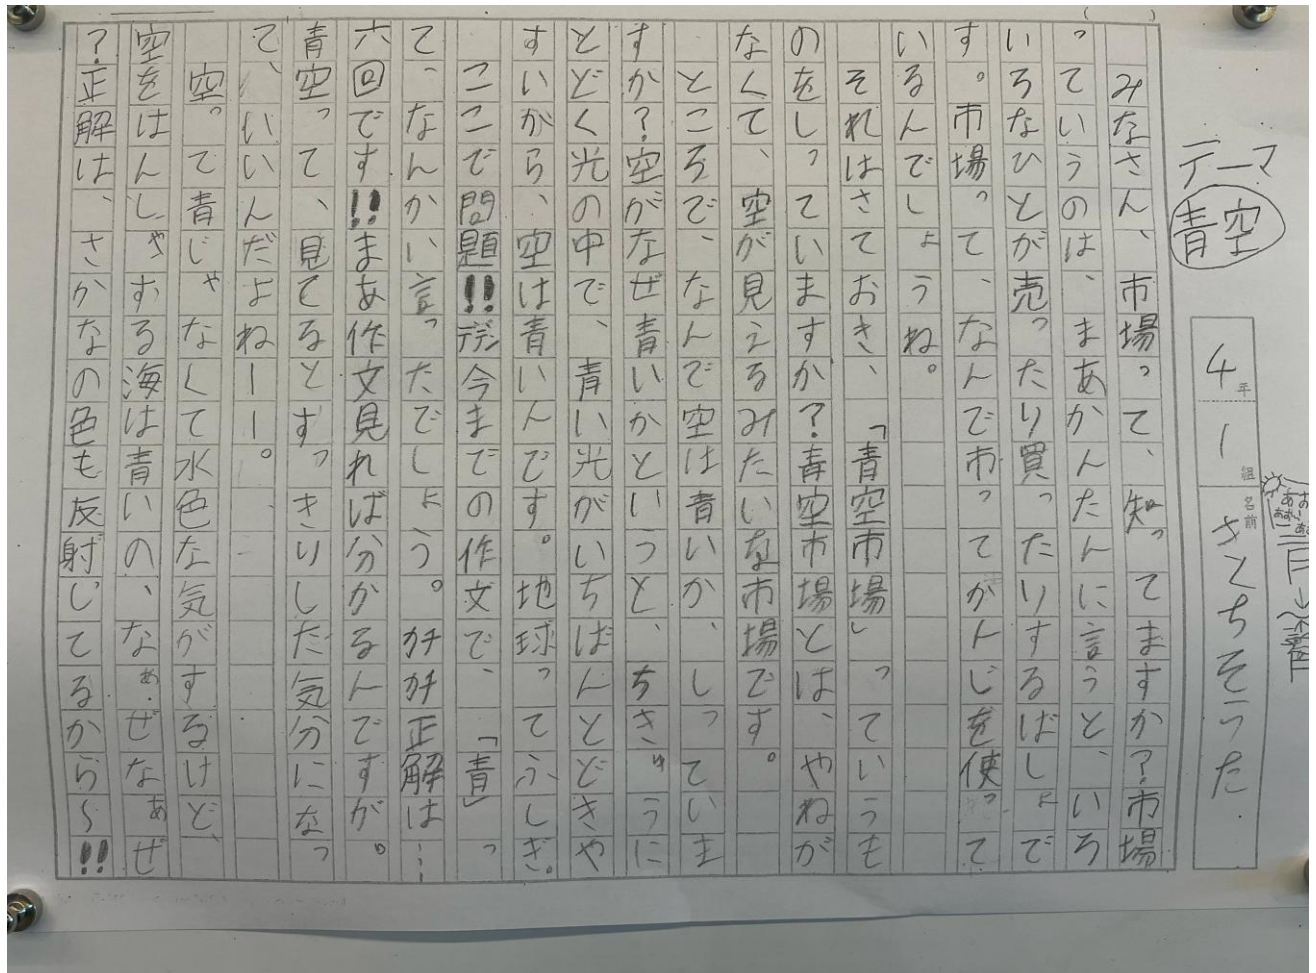 テーマ
青空
4年1組 名前 さとちそうた
みなさん、市場って、知ってますか?市場
っていうのは、まあかんたんに言うと、いろ
いろなひとが売ったり買ったりするばしょで
す。市場って、なんで市ってかんじを使って
いるんでしょうね。
それはさておき、「青空市場」っていうも
のをしっていますか?青空市場とは、やねが
なくて、空が見えるみたいな市場です。
ところで、なんで空は青いか、しっていま
すか?空がなぜ青いかというっと、ちきゅうに
とどく光の中で、青い光がいちばんとどきや
すいがら、空は青いんです。地球ってふしぎ。
ここで問題!!デデン今までの作文で、「青」っ
て、なんかい言ったでしょう。カチカチ正解は…
六回です!!まあ作文見れば分かるんですが。
青空って、見てるとすっきりした気分になっ
て、いいんだよねーー。
空って青じゃなくて水色な気がするけど、
空をはんしゃする海は青いの、なぁぜなあぜ
?正解は、さかなの色も反射してるから〜!!